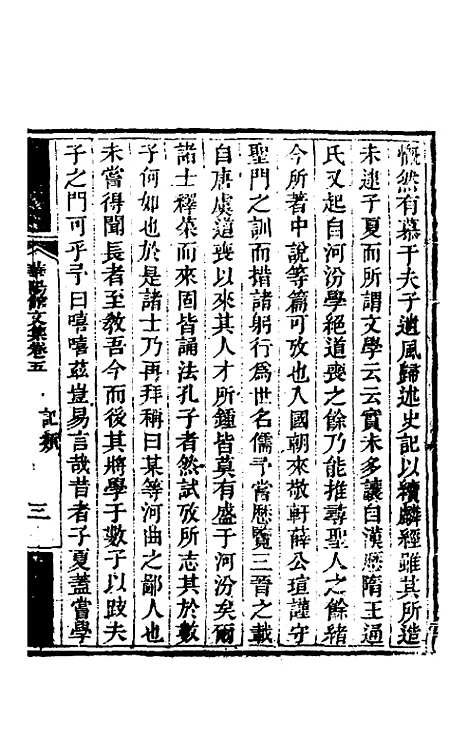 慨然有慕于夫子遺風歸述史記以續麟經雖其所造
未逮子夏而所謂文學云云實未多讓自漢應隋王通
氏又起自河汾學絕道喪之餘乃能推尋聖人之餘緒
今所著中說等篇可攷也入國朝來敬軒薛公瑄謹守
聖門之訓而措諸躬行爲世名儒予嘗應覽三晉之載
自唐虞道喪以來其人才所鍾皆莫有盛于河汾矣爾
諸士釋菜而來固皆誦法孔子者然試攷所志其於數
子何如也於是諸士乃再拜稱曰某等河曲之鄙人也
未嘗得聞長者至教吾今而後其將學于數子以跂夫
子之門可乎予曰嘻嘻茲豈易言哉昔者子夏蓋嘗學
華陽館文集卷五
記類
三